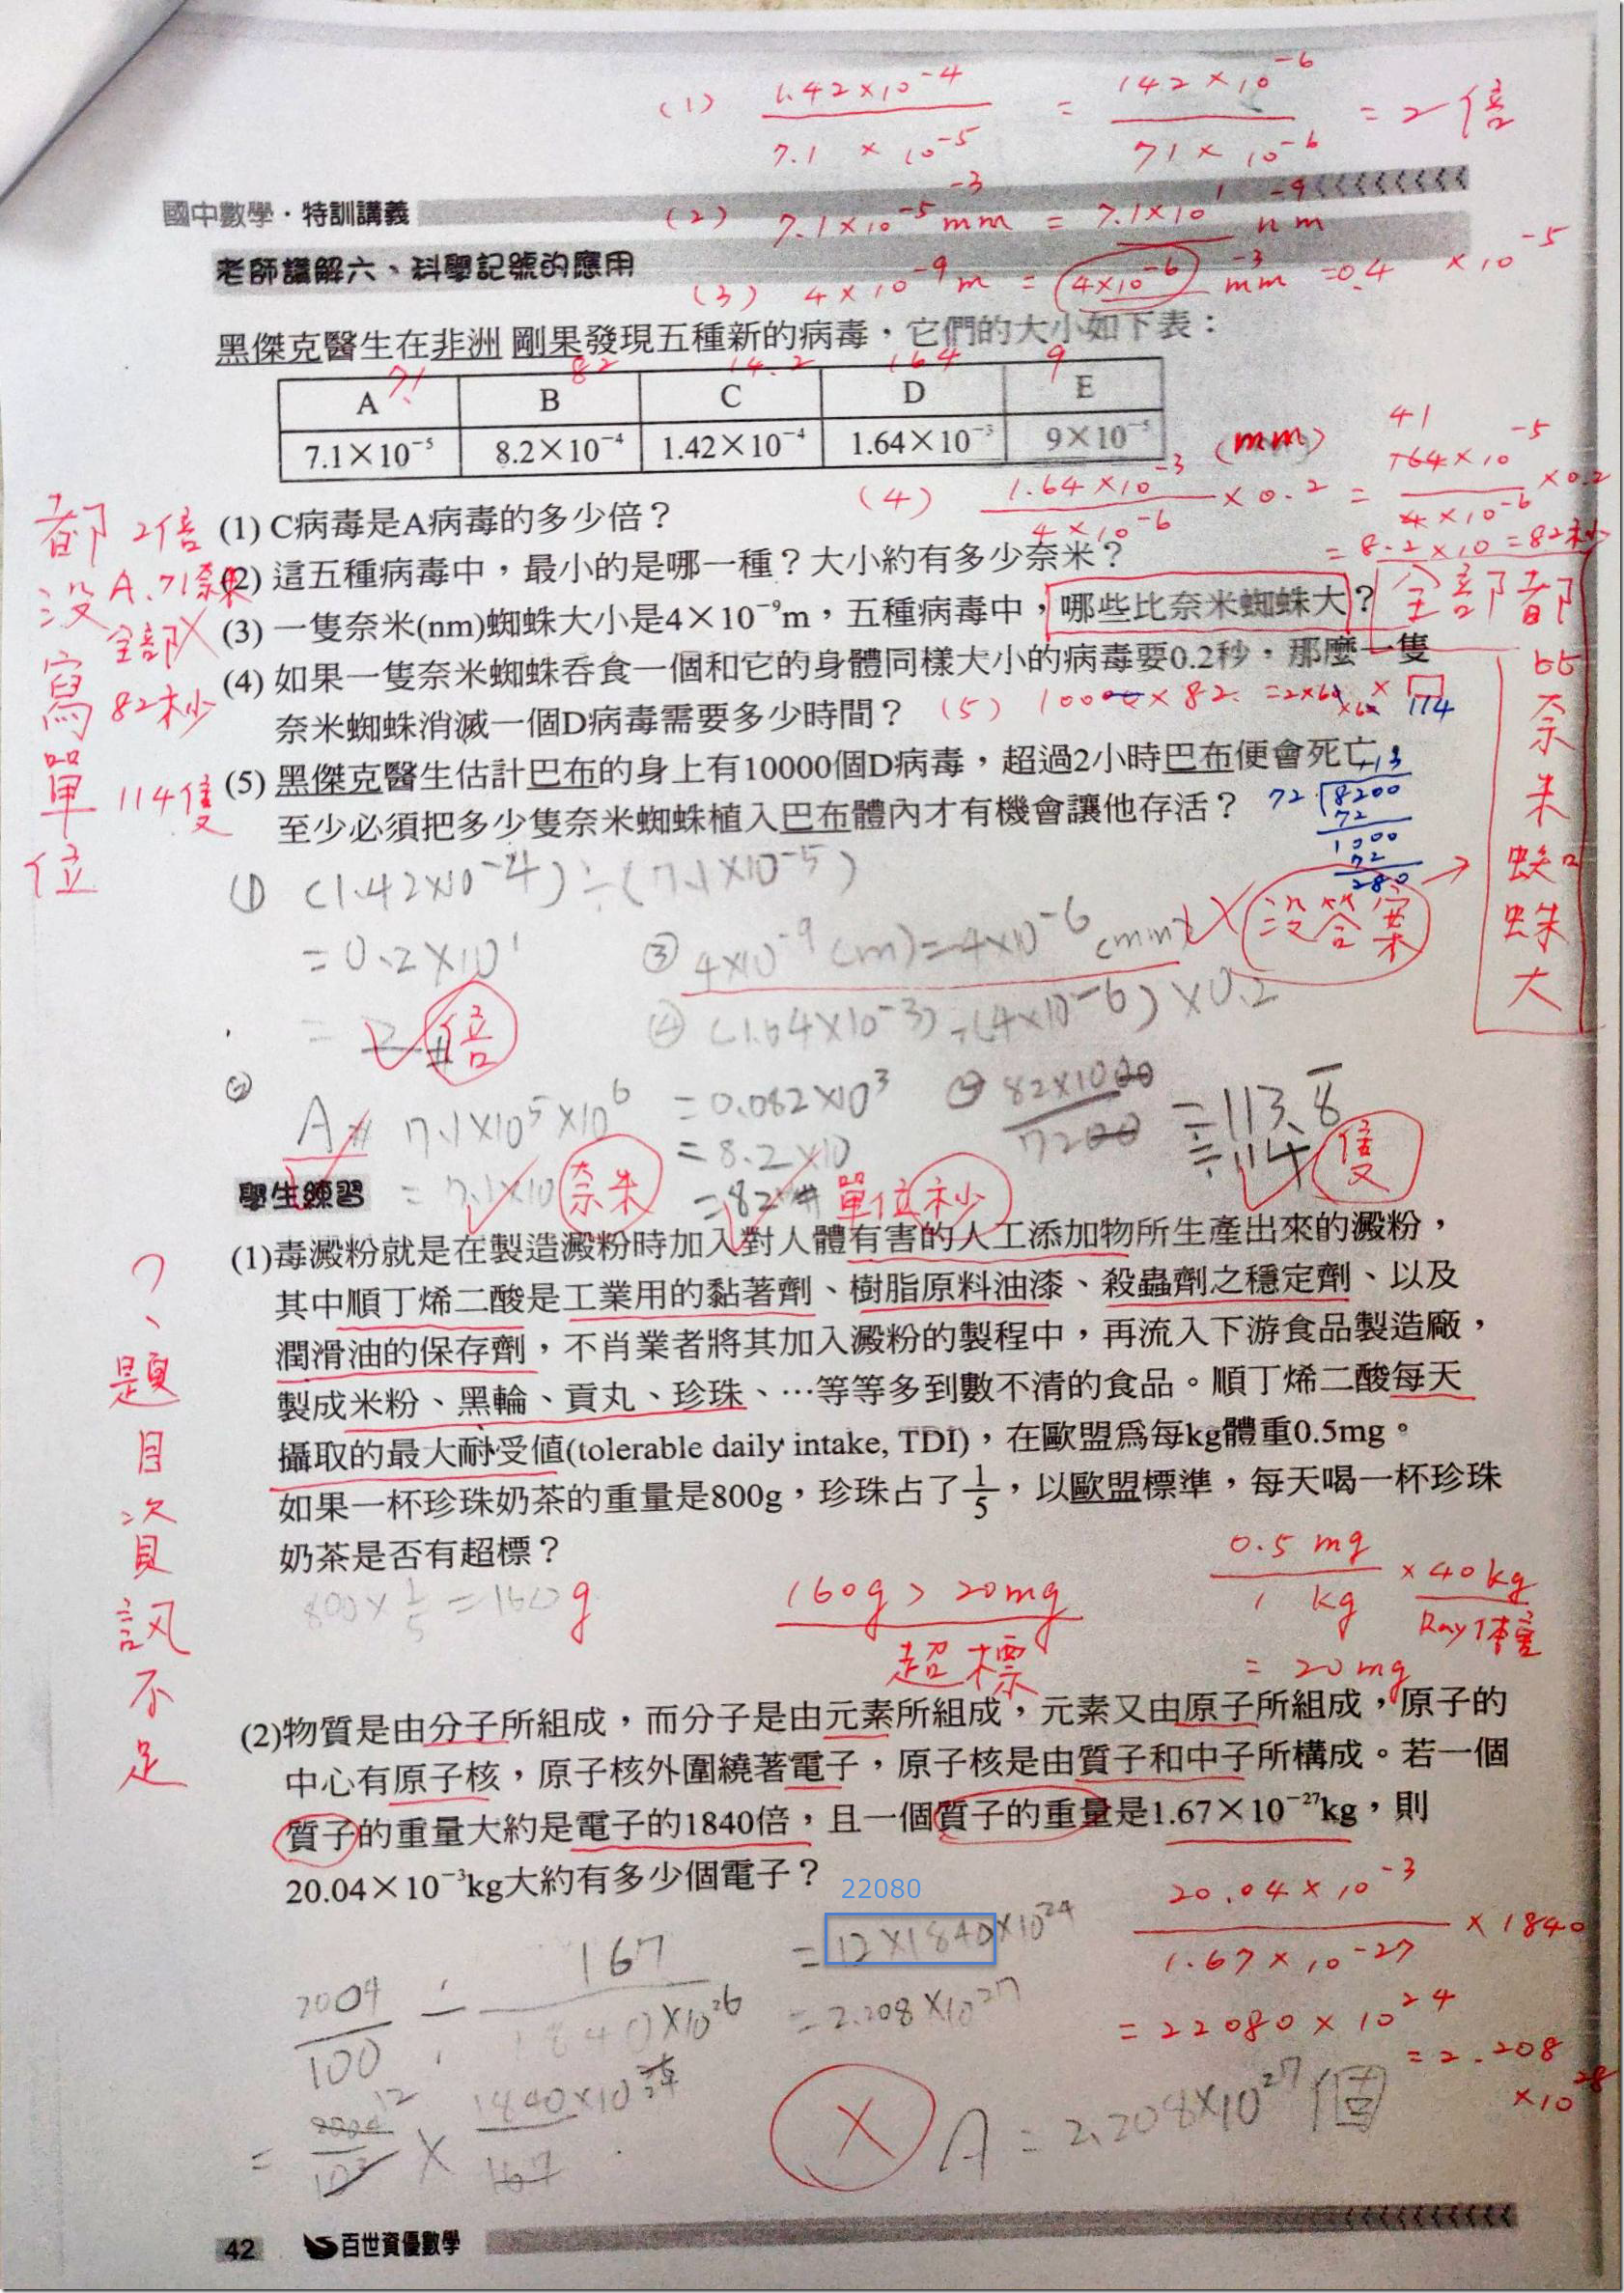 (1) 1.42×10⁻⁴ / 7.1×10⁻⁵ = 142×10⁻⁶ / 71×10⁻⁶ = 2倍
國中數學・特訓講義
(2) 7.1×10⁻⁵⁻³ mm = 7.1×10¹ ⁻⁹ nm
老師講解六、科學記號的應用
(3) 4×10⁻⁹ m = 4×10⁻⁶ ⁻³ mm = 0.4 ×10⁻⁵
黑傑克醫生在非洲 剛果發現五種新的病毒，它們的大小如下表：
71 82 14.2 164 9
A B C D E
7.1×10⁻⁵ 8.2×10⁻⁴ 1.42×10⁻⁴ 1.64×10⁻³ 9×10⁻⁵ (mm)
(4) 1.64×10⁻³ / 4×10⁻⁶ ×0.2 = 41 164×10⁻⁵ / 4×10⁻⁶ ×0.2
= 8.2×10 = 82秒
都沒寫單位
2倍
A、71奈米
全部
82秒
114隻
(1) C病毒是A病毒的多少倍？
(2) 這五種病毒中，最小的是哪一種？大小約有多少奈米？
(3) 一隻奈米(nm)蜘蛛大小是4×10⁻⁹m，五種病毒中，哪些比奈米蜘蛛大？
全部都比奈米蜘蛛大
(4) 如果一隻奈米蜘蛛吞食一個和它的身體同樣大小的病毒要0.2秒，那麼一隻
奈米蜘蛛消滅一個D病毒需要多少時間？
(5) 10000×82 = 2×60×60×□ 114
(5) 黑傑克醫生估計巴布的身上有10000個D病毒，超過2小時巴布便會死亡，
至少必須把多少隻奈米蜘蛛植入巴布體內才有機會讓他存活？
113
72 8200
72
1000
72
280
① (1.42×10⁻⁴)÷(7.1×10⁻⁵)
= 0.2×10¹
= 2# 倍
③ 4×10⁻⁹(m)=4×10⁻⁶(mm) 沒答案
④ (1.64×10⁻³)÷(4×10⁻⁶)×0.2
= 0.082×10³
= 8.2×10
= 82# 單位秒
② A# 7.1×10⁵×10⁶
= 7.1×10 奈米
82×10000 / 7200 = 113.8
≒ 114 隻
學生練習
(1)毒澱粉就是在製造澱粉時加入對人體有害的人工添加物所生產出來的澱粉，
其中順丁烯二酸是工業用的黏著劑、樹脂原料油漆、殺蟲劑之穩定劑、以及
潤滑油的保存劑，不肖業者將其加入澱粉的製程中，再流入下游食品製造廠，
製成米粉、黑輪、貢丸、珍珠、…等等多到數不清的食品。順丁烯二酸每天
攝取的最大耐受值(tolerable daily intake, TDI)，在歐盟爲每kg體重0.5mg。
如果一杯珍珠奶茶的重量是800g，珍珠占了1/5，以歐盟標準，每天喝一杯珍珠
奶茶是否有超標？
?、題目資訊不足
800×1/5=160g
160g > 20mg
超標
0.5 mg / 1 kg × 40kg
Ray体重
= 20mg
(2)物質是由分子所組成，而分子是由元素所組成，元素又由原子所組成，原子的
中心有原子核，原子核外圍繞著電子，原子核是由質子和中子所構成。若一個
質子的重量大約是電子的1840倍，且一個質子的重量是1.67×10⁻²⁷kg，則
20.04×10⁻³kg大約有多少個電子？
22080
2004/100 ÷ 167/1840×10²⁶
= 12×1840×10²⁴
= 2.208×10²⁷
20.04×10⁻³ / 1.67×10⁻²⁷ × 1840
= 22080×10²⁴
= 2.208×10²⁸
A = 2.208×10²⁷個
42 百世資優數學